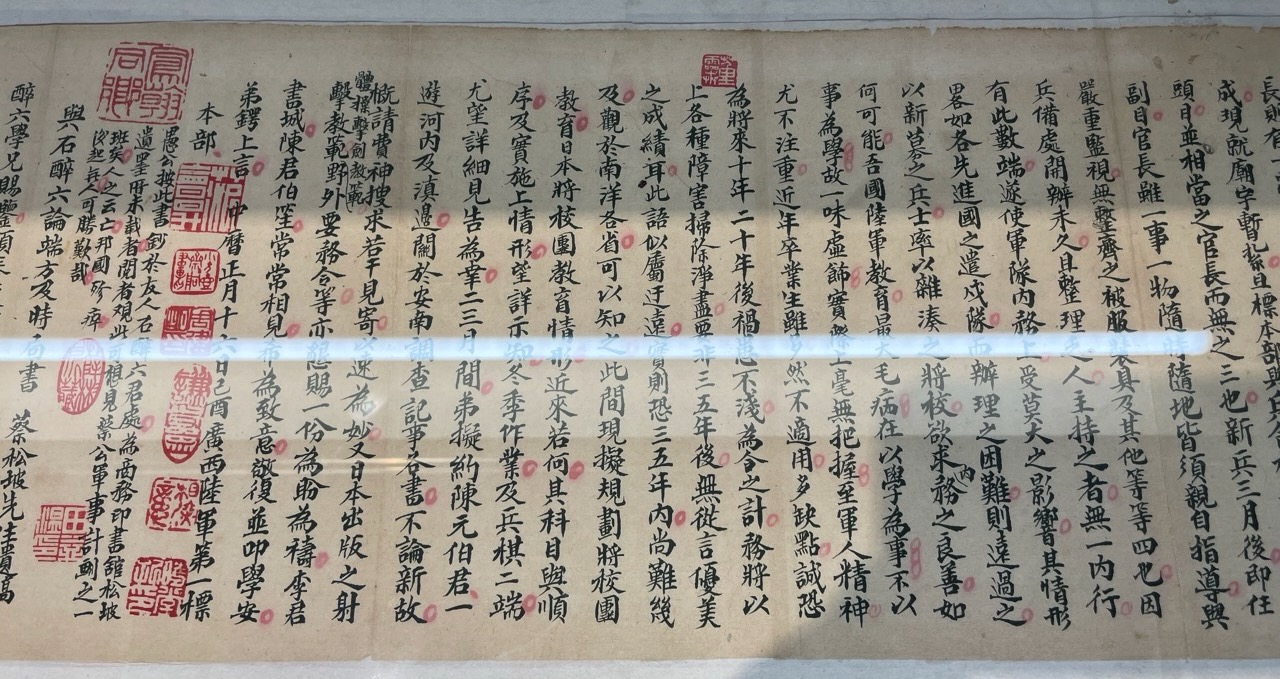 長則有一
成現就廟宇暫紮且標本部與兵
頭目並相當之官長而無之三也新兵三月後即任
副目官長雖一事一物隨時隨地皆須親自指導與
嚴重監視無整齊之被服裝具及其他等等四也因
兵備處開辦未久且整理之人主持之者無一內行
有此數端遂使軍隊內務上受莫大之影響其情形
畧如各先進國之遣戍隊而辦理之困難則遠過之
以新募之兵士率以雜湊之將校欲求內務之良善如
何可能吾國陸軍教育最大毛病在以學為事不以
事為學故一味虛飾實際上毫無把握至軍人精神
尤不注重近年卒業生雖多然不適用多缺點誠恐
為將來十年二十年後禍患不淺為今之計務將以
上各種障害掃除淨盡要非三五年後無從言優美
之成績耳此語似屬迂遠實則恐三五年內尚難幾
及觀於南洋各省可以知之此間現擬規劃將校團
教育日本將校團教育情形近來若何其科目與順
序及實施上情形望詳示知冬季作業及兵棋二端
尤望詳細見告為幸二三日間弟擬約陳元伯君一
遊河內及滇邊關於安南調查記事各書不論新故
概請費神搜求若干見寄以速為妙又日本出版之射
擊教範野外要務令等亦懇賜一份為盼為禱李君
體操擊劍教範
書城陳君伯笙常常相見希為致意敬復並叩學安
弟鍔上言 中曆正月十六日己酉廣西陸軍第一標
本部
愚公按此書鈔於友人石醉六君處為商務印書館松坡
遺墨所未載者閱者觀此可想見蔡公軍事計劃之一
班矣人之云亡邦國殄瘁
後起無人可勝歎哉
與石醉六論端方及時局書 蔡松坡先生遺高
醉六學兄賜鑒